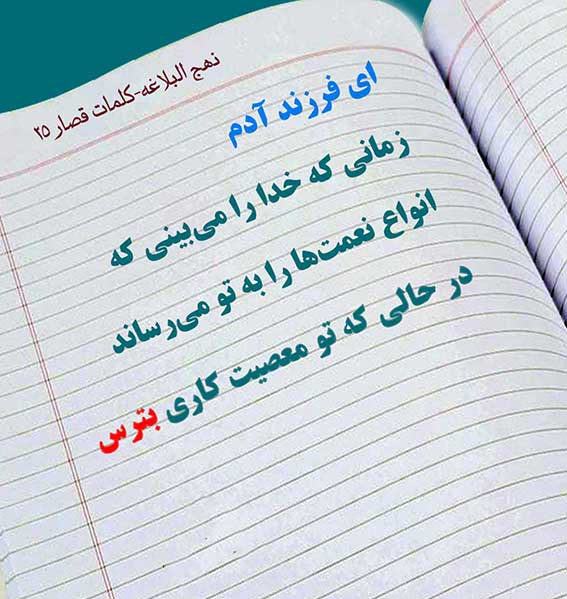 نهج البلاغه-کلمات قصار ۲۵
ای فرزند آدم
زمانی که خدا را می‌بینی که
انواع نعمت‌ها را به تو می‌رساند
در حالی که تو معصیت کاری بترس